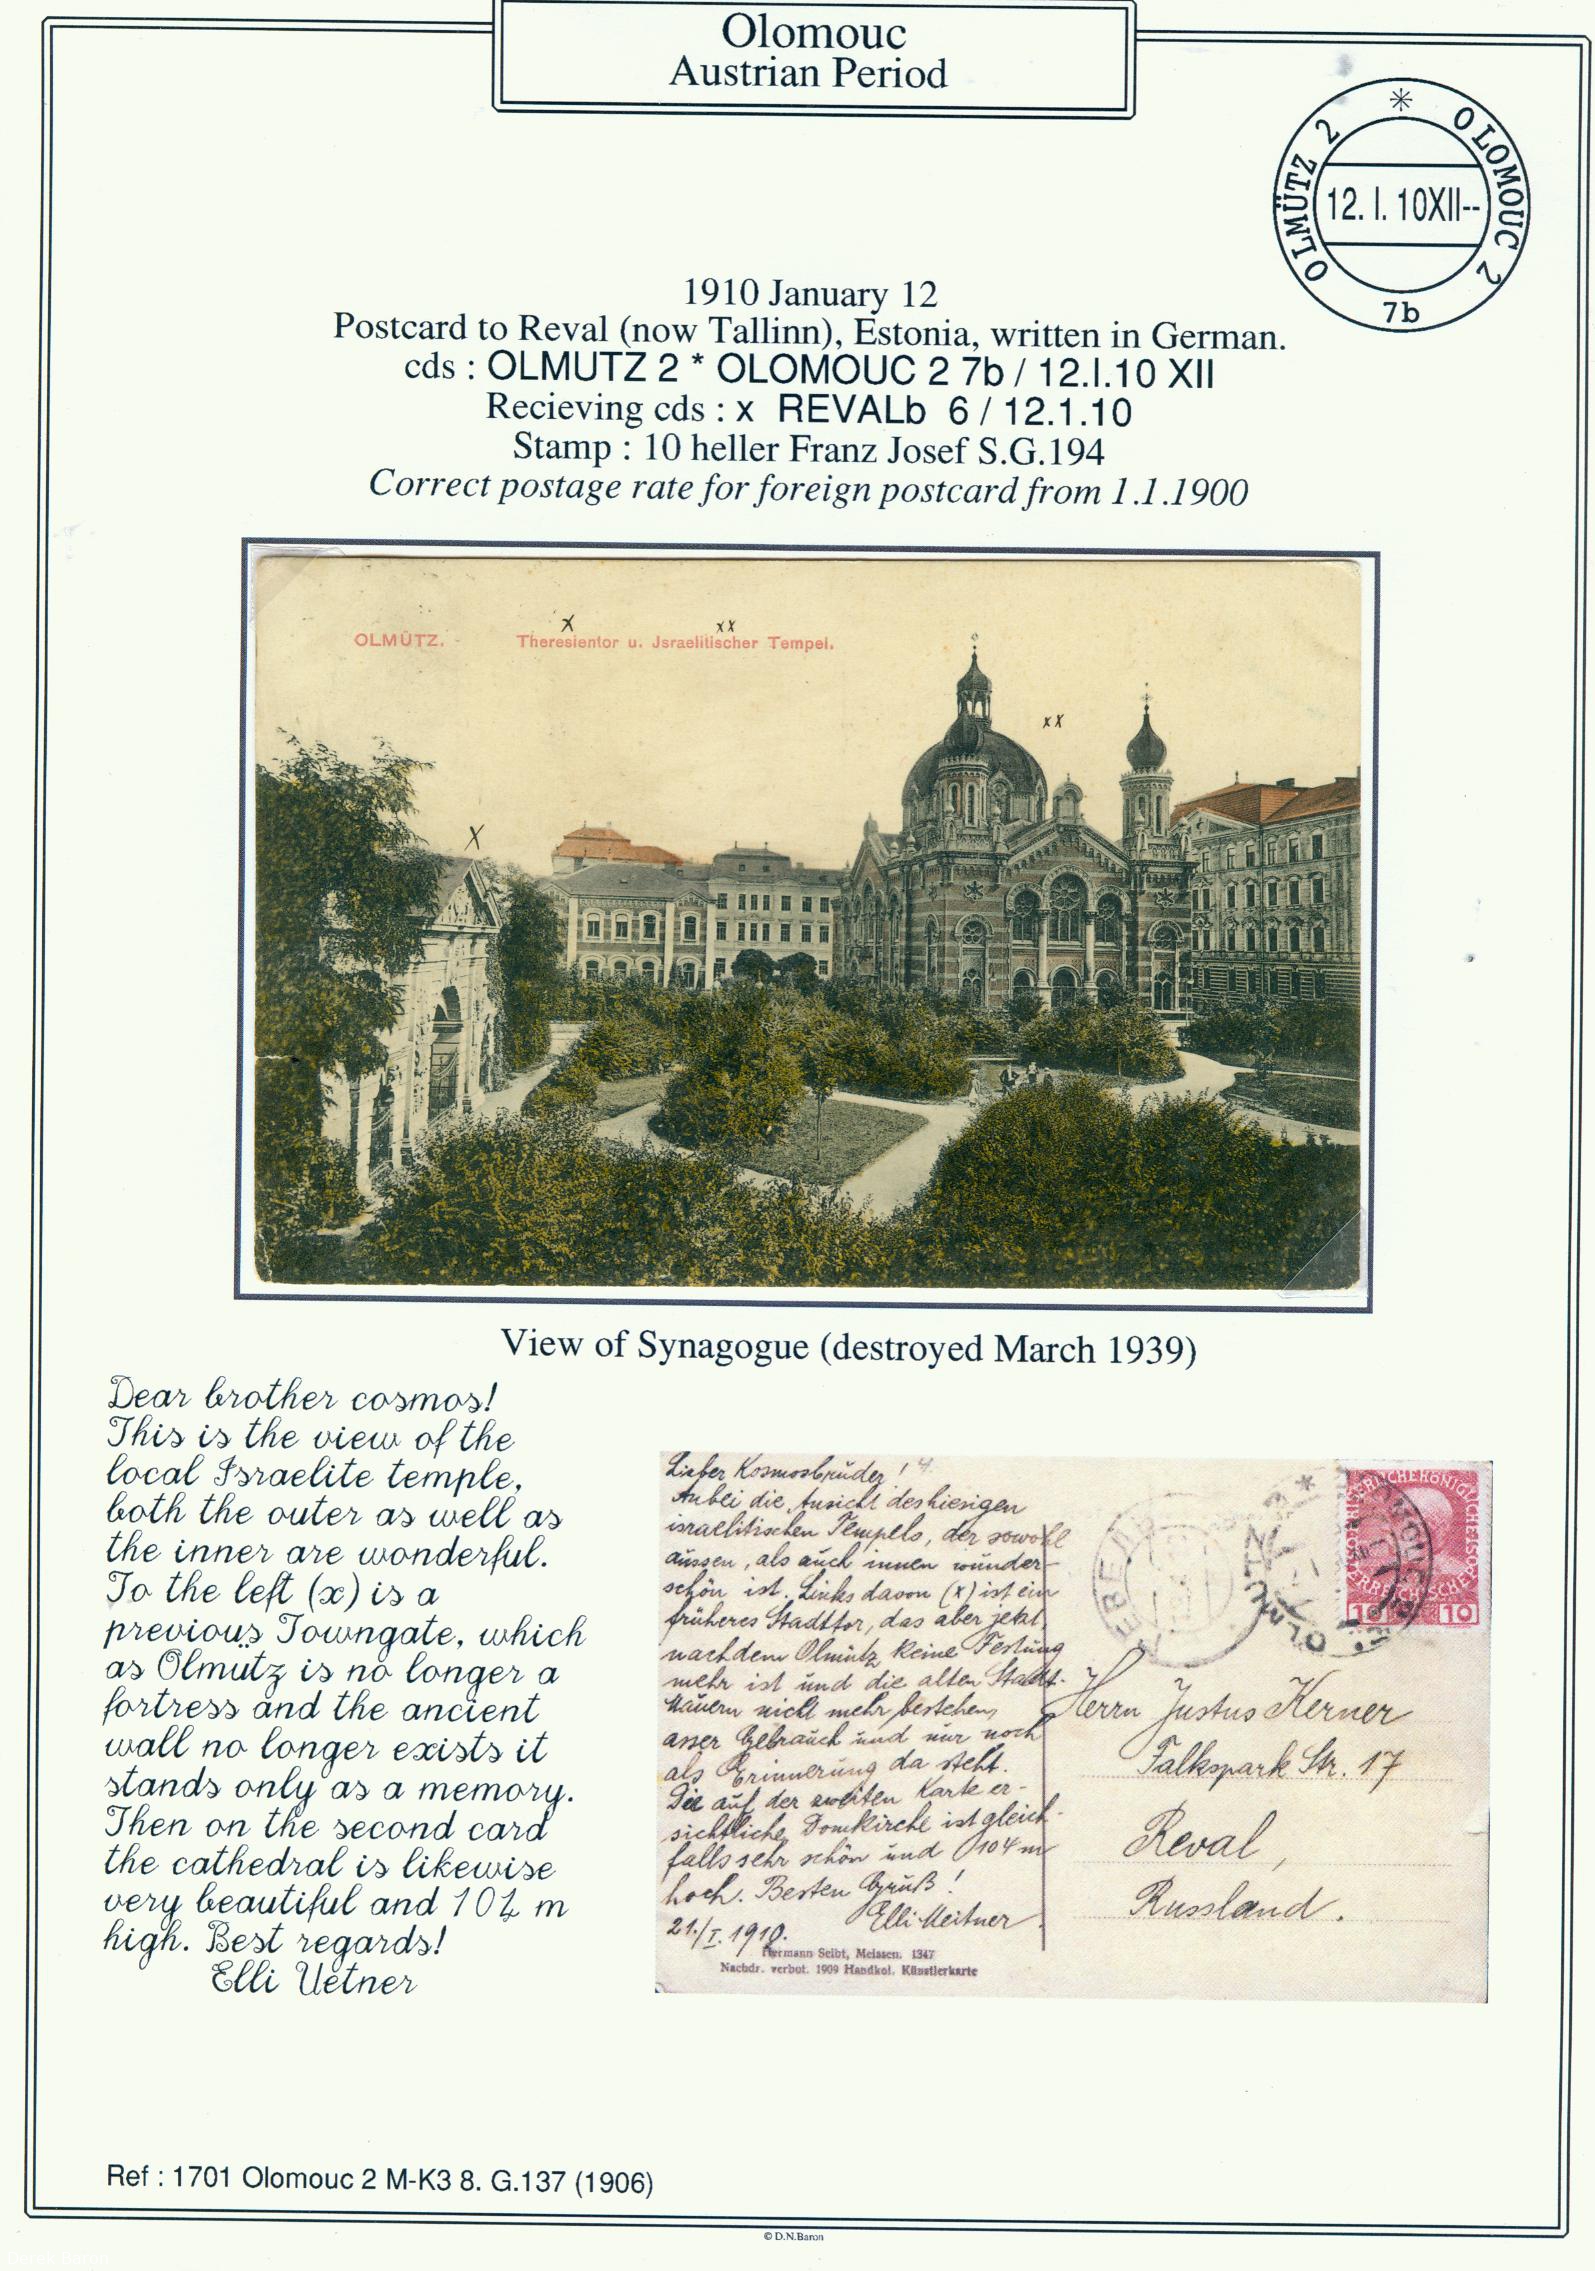 Olomouc
Austrian Period
OLMÜTZ 2 * OLOMOUC 2
12. I. 10XII--
7b
1910 January 12
Postcard to Reval (now Tallinn), Estonia, written in German.
cds : OLMUTZ 2 * OLOMOUC 2 7b / 12.I.10 XII
Recieving cds : x REVALb 6 / 12.1.10
Stamp : 10 heller Franz Josef S.G.194
Correct postage rate for foreign postcard from 1.1.1900
x xx
OLMÜTZ. - Theresientor u. Jsraelitischer Tempel.
xx
x
View of Synagogue (destroyed March 1939)
Dear brother cosmos!
This is the view of the
local Israelite temple,
both the outer as well as
the inner are wonderful.
To the left (x) is a
previous Towngate, which
as Olmütz is no longer a
fortress and the ancient
wall no longer exists it
stands only as a memory.
Then on the second card
the cathedral is likewise
very beautiful and 104 m
high. Best regards!
Elli Uetner
Lieber Kosmosbruder! 4
Anbei die Ansicht des hiesigen
israelitischen Tempels, der sowohl
aussen, als auch innen wunder-
schön ist. Links davon (x) ist ein
früheres Stadttor, das aber jetzt,
nachdem Olmütz keine Festung
mehr ist und die alten Stadt-
mauern nicht mehr bestehen,
asser Gebrauch und nur noch
als Erinnerung da steht.
Die auf der zweiten Karte er-
sichtliche Domkirche ist gleich-
falls sehr schön und 104 m
hoch. Besten Gruß!
Elli Meitner.
21./I. 1910.
Hermann Seibt, Meissen. 1347
Nachdr. verbot. 1909 Handkol. Künstlerkarte
10 10
OLMÜTZ
Herrn Justus Kerner
Falkspark Str. 17
Reval,
Russland.
Ref : 1701 Olomouc 2 M-K3 8. G.137 (1906)
© D.N.Baron
Derek Baron